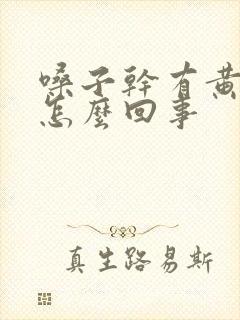 嗓子幹有黃
怎麼回事
真生路易斯